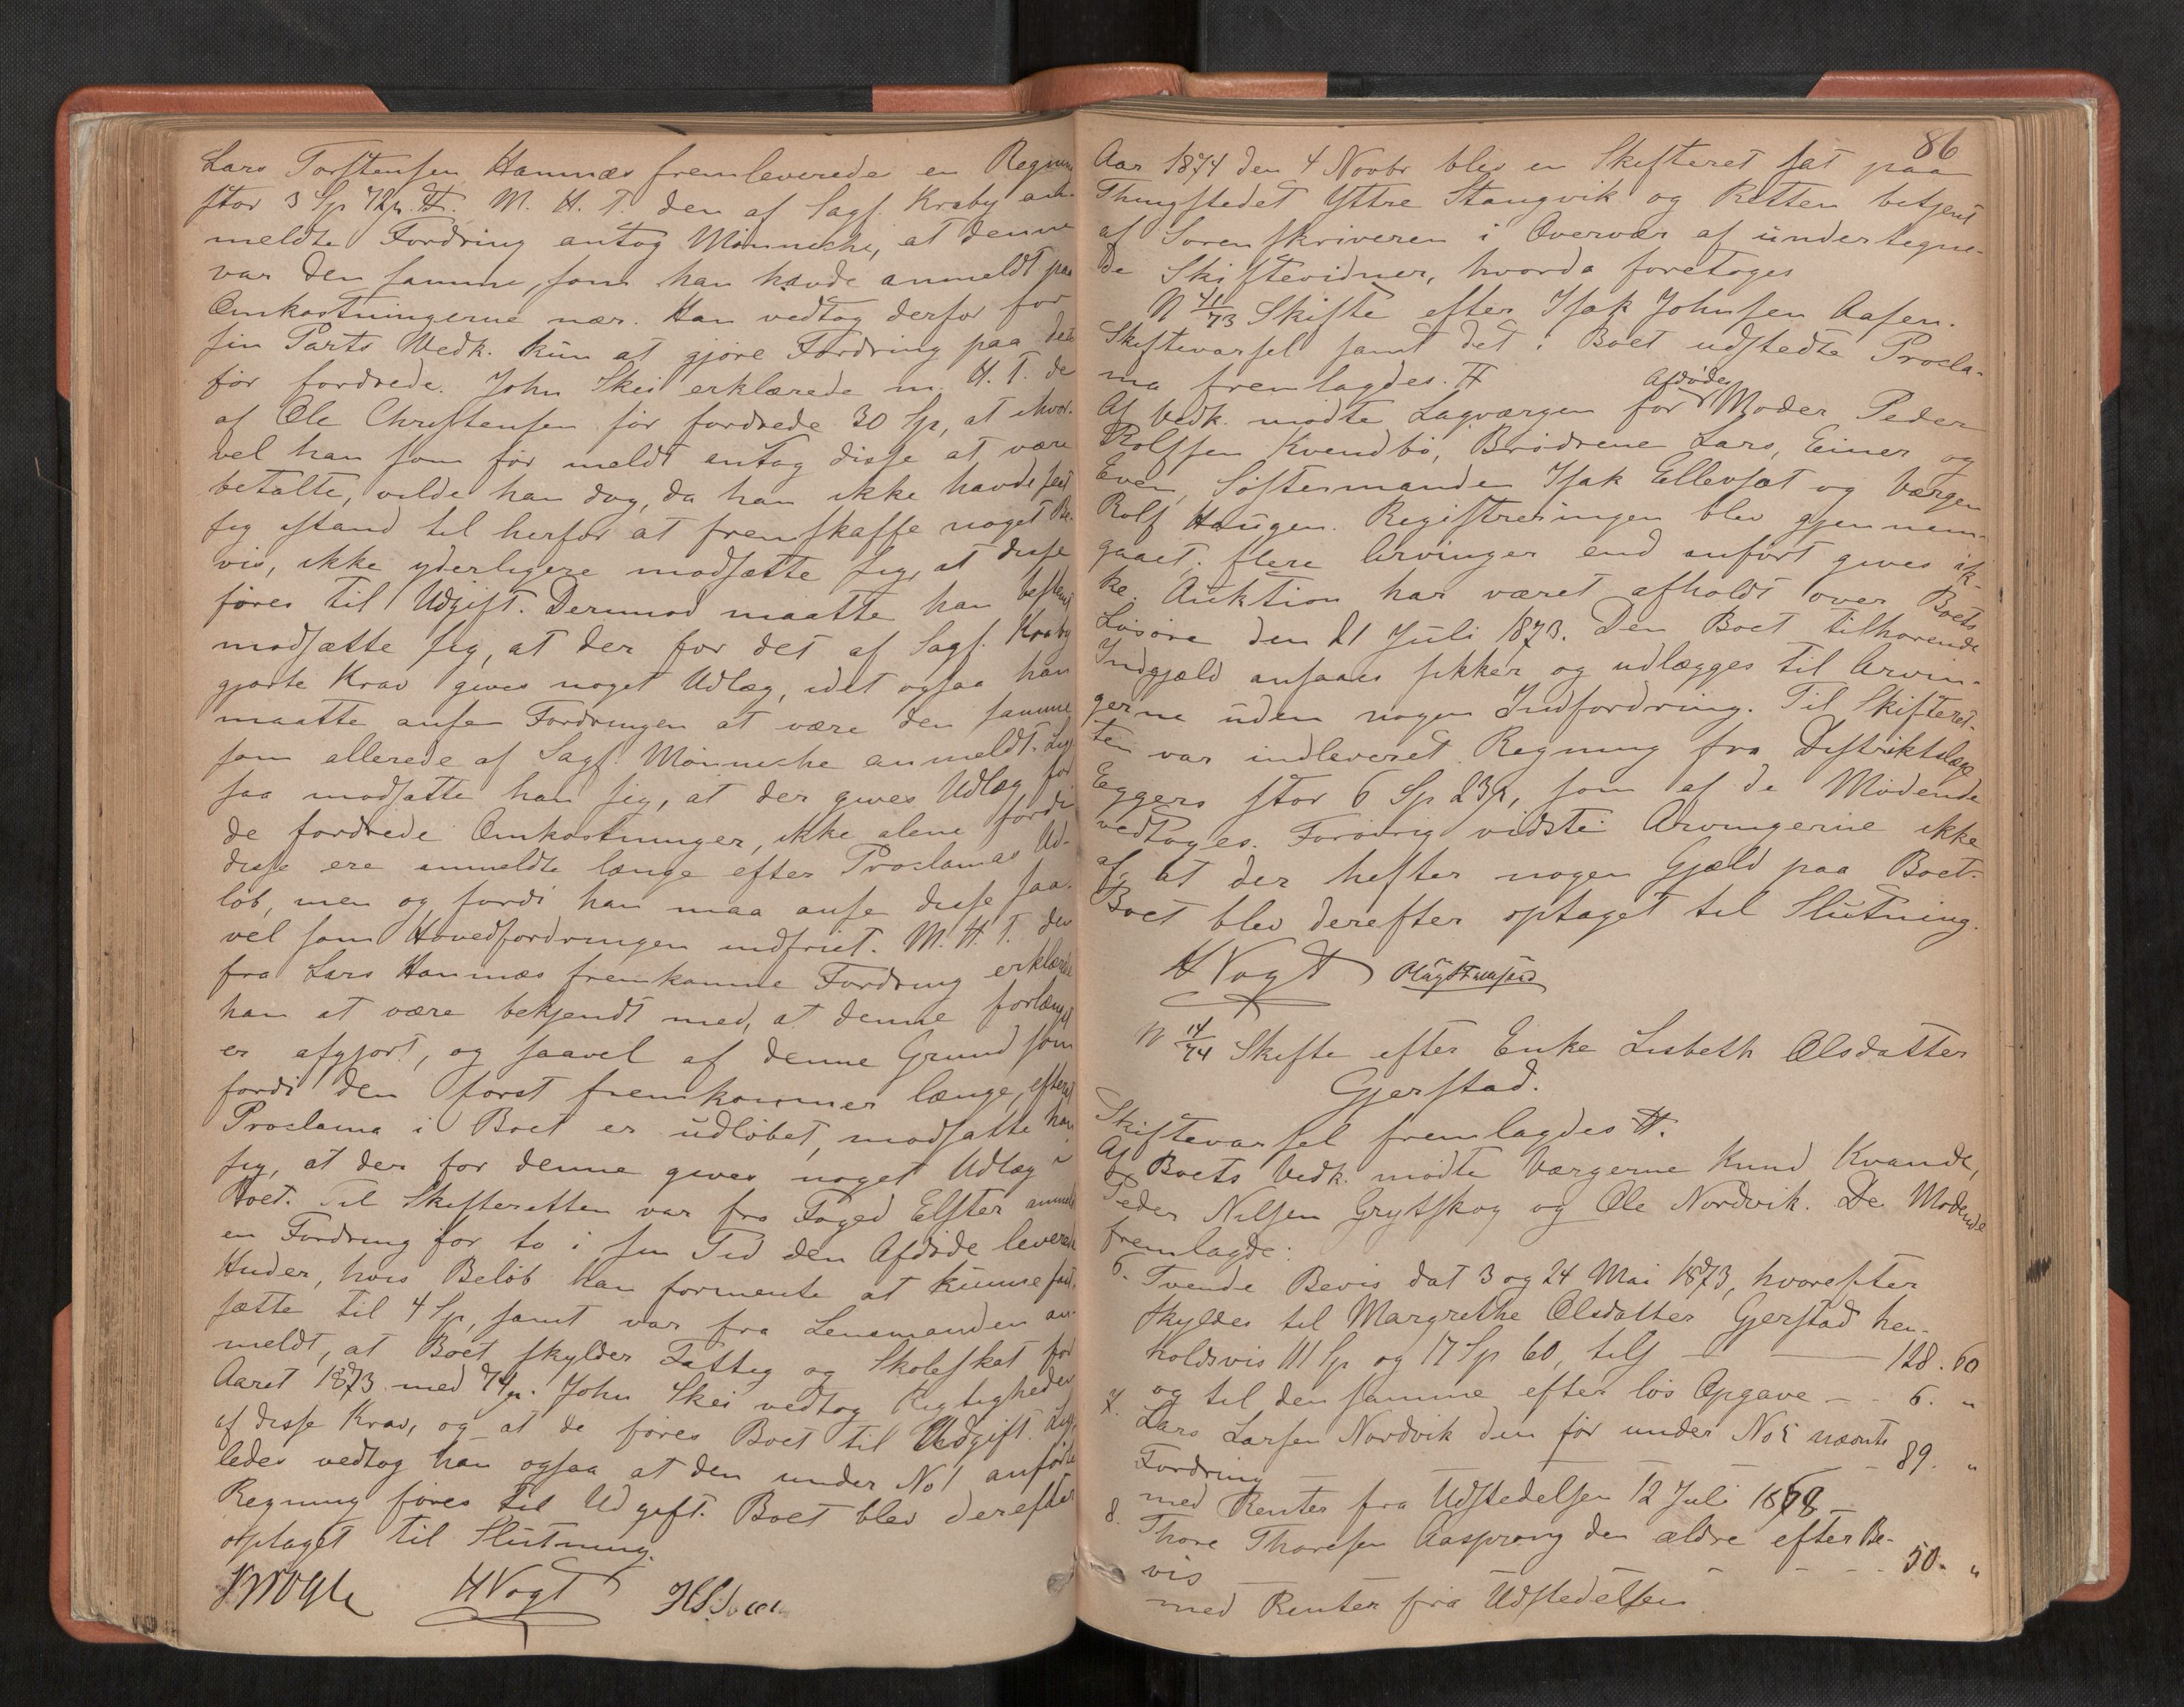 Lars Torstensen Hamnæs fremleverede en Regning
stor 3 Sp 72ß. #. M. H. T. den af Sagf. Kraby an-
meldte Fordring antog Mönniche, at denne
var den samme, som han havde anmeldt paa
Omkostningerne nær. Han vedtog derfor for
sin Parts Vedk. kun at gjøre Fordring paa det
før fordrede. John Skei erklærede m. H. T. de
af Ole Christensen før fordrede 30 Sp, at ihvor-
vel han som før meldt antog disse at være
betalte, vilde han dog, da han ikke havde seet
sig istand til herfor at fremskaffe noget Be-
vis, ikke yderligere modsætte sig, at disse
føres til Udgift. Derimod maatte han bestemt
modsætte sig, at der for det af Sagf. Kraby
gjorte Krav gives noget Udlæg, idet ogsaa han
maatte ansee Fordringen at være den samme
som allerede af Sagf. Mönniche anmeldt. Lige-
saa modsatte han sig, at der gives Udlæg for
de fordrede Omkostninger, ikke alene fordi
disse ere anmeldte længe efter Proclamas Ud-
løb, men og fordi han maa anse disse saa-
vel som Hovedfordringen indfriet. M. H. T. den
fra Lars Hamnæs fremkomne Fordring erklærede
han at være bekjendt med, at denne forlængst
er afgjort, og saavel af denne Grund som
fordi den først fremkommer længe, efterat
Proclama i Boet er udløbet, modsatte han
sig, at der for denne gives noget Udlæg i
Boet. Til Skifteretten var fra Foged Elster anmeldt
en Fordring for to i sin Tid den Afdøde leverede
Huder, hvis Beløb han formente at kunne fast-
sætte til 4 Sp, samt var fra Lensmanden an-
meldt, at Boet skylder Fattig og Skoleskat for
Aaret 1873 med 74ß. John Skei vedtog Rigtigheden
af disse Krav, og at de føres Boet til Udgift. Lige-
ledes vedtog han ogsaa at den under No 1 anførte
Regning føres til Udgift. Boet blev derefter
optaget til Slutning.
HVogt
86
Aar 1874 den 4 Novbr blev en Skifteret sat paa
Thingstedet Yttre Stangvik og Retten betjent
af Sorenskriveren i Overvær af undertegne-
de Skiftevidner, hvorda foretoges
N 41/73 Skifte efter Isak Johnsen Aasen.
Skiftevarsel samt det i Boet udstedte Procla-
ma fremlagdes. #
Afdødes
Af Vedk. mødte Lagværgen for Moder Peder
Rolfsen Kvendbø, Brødrene Lars, Einer og
Even, Søstermanden Isak Ellevsæt og Værgen
Rolf Haugen. Registreringen blev gjennem-
gaaet; flere Arvinger end anført gives ik-
ke. Auktion har været afholdt over Boets
Løsøre den 21 Juli 1873. Den Boet tilhørende
Indgjæld ansaaes sikker og udlægges til Arvin-
gerne uden nogen Indfordring. Til Skifteret-
ten var indleveret Regning fra Distriktslæge
Eggers stor 6 Sp 23ß, som af de Mødende
vedtoges. Forøvrig vidste Arvingerne ikke
af, at der hefter nogen Gjæld paa Boet.
Boet blev derefter optaget til Slutning.
HVogt
N 14/74 Skifte efter Enke Lisbeth Olsdatter
Gjerstad.
Skiftevarsel fremlagdes #.
Af Boets Vedk. mødte Værgerne Knud Kvande,
Peder Nilsen Grytskog og Ole Nordvik. De Mødende
fremlagde:
6. Tvende Bevis dat 3 og 24 Mai 1873, hvorefter
skyldes til Margrethe Olsdatter Gjerstad hen-
holdsvis 111 Sp og 17 Sp 60, tils — 128. 60
og til den samme efter løs Opgave — 6. "
7. Lars Larsen Nordvik den før under No 5 nævnte
Fordring — 89. "
med Renter fra Udstedelsen 12 Juli 1868
8. Thore Thoresen Aasprong den ældre efter Be-
vis - - - 50. "
med Renter fra Udstedelsen